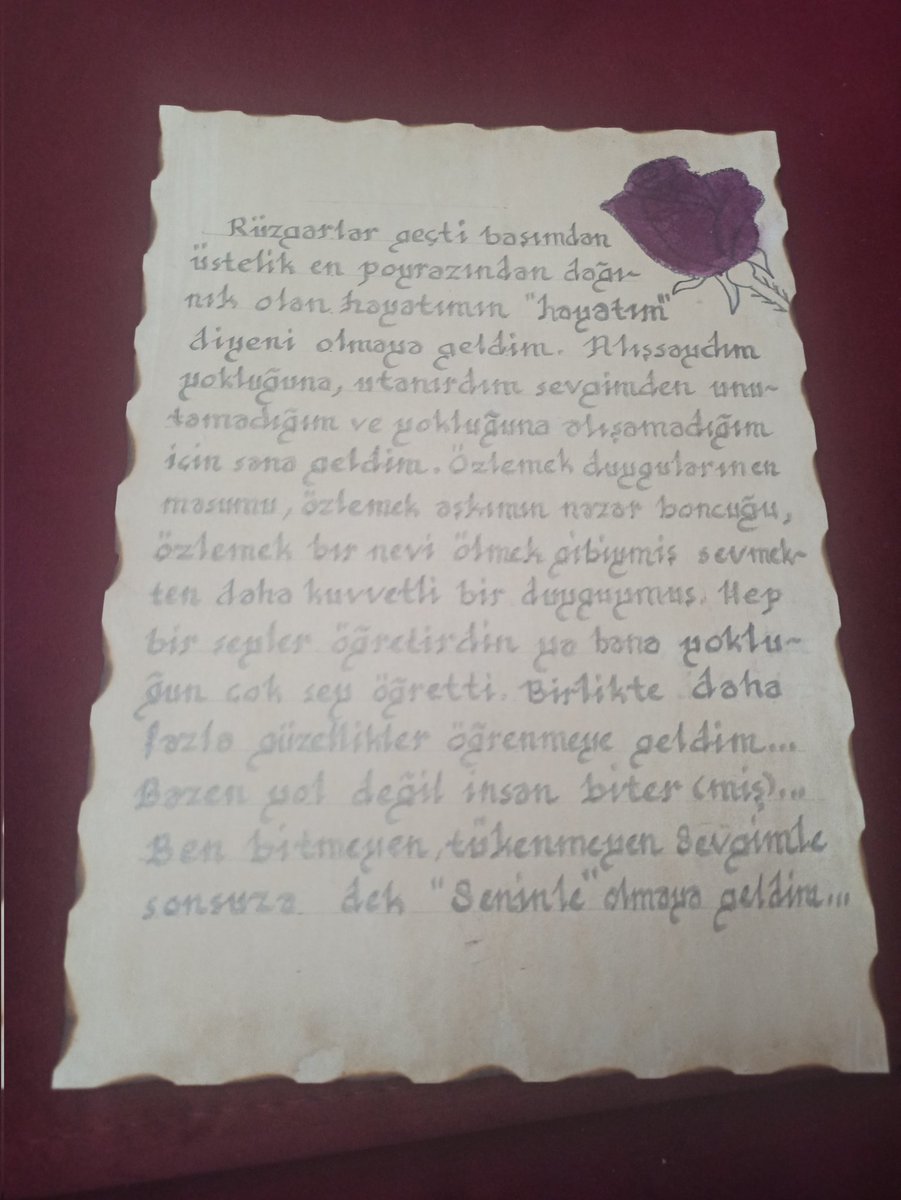 Rüzgarlar geçti başımdan
üstelik en poyrazından dağı-
nık olan hayatımın "hayatım"
diyeni olmaya geldim. Alışsaydım
yokluğuna, utanırdım sevgimden unu-
tamadığım ve yokluğuna alışamadığım
için sana geldim. Özlemek duyguların en
masumu, özlemek aşkımın nazar boncuğu,
özlemek bir nevi ölmek gibiymiş sevmek-
ten daha kuvvetli bir duyguymuş. Hep
bir şeyler öğretirdin ya bana yoklu-
ğun çok şey öğretti. Birlikte daha
fazla güzellikler öğrenmeye geldim...
Bazen yol değil insan biter (miş)...
Ben bitmeyen, tükenmeyen Sevgimle
sonsuza dek "Seninle" olmaya geldim...